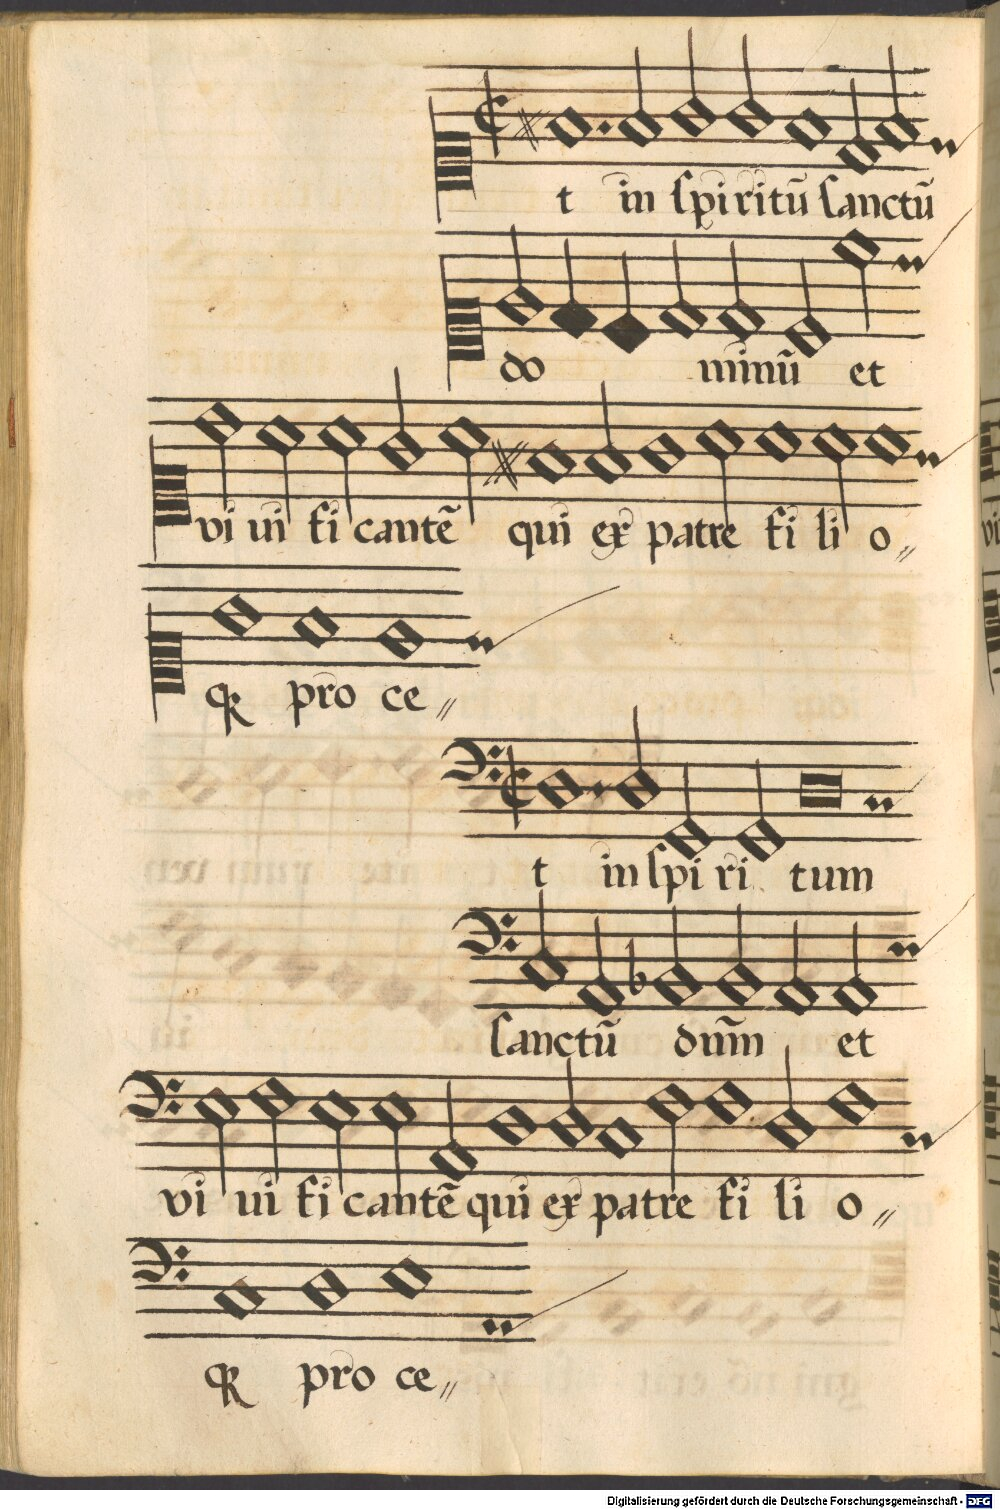 t in spiritū sanctū
do minū et
vi vi fi cantē qui ex patre fi li o
qꝫ pro ce
t in spi ri tum
sanctū dnm̄ et
vi vi fi cantē qui ex patre fi li o
qꝫ pro ce
Digitalisierung gefördert durch die Deutsche Forschungsgemeinschaft - DFG